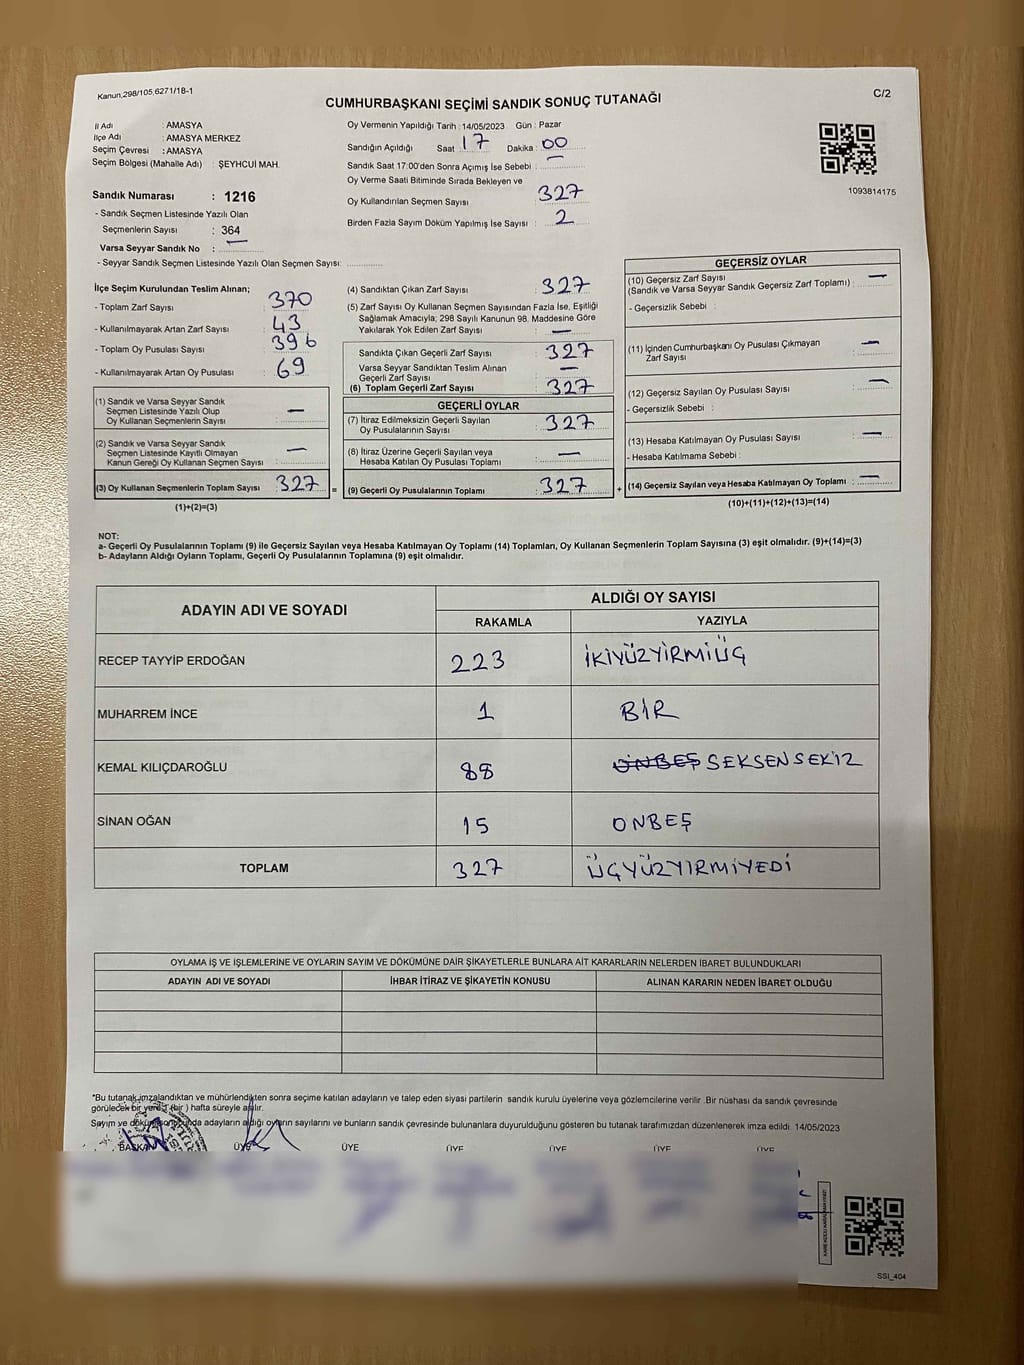 Kanun,298/105,6271/18-1
CUMHURBAŞKANI SEÇİMİ SANDIK SONUÇ TUTANAĞI
C/2
İl Adı : AMASYA
İlçe Adı : AMASYA MERKEZ
Seçim Çevresi : AMASYA
Seçim Bölgesi (Mahalle Adı) : ŞEYHCUİ MAH.
Oy Vermenin Yapıldığı Tarih : 14/05/2023 Gün : Pazar
Sandığın Açıldığı Saat 17 Dakika : 00
Sandık Saat 17:00'den Sonra Açımış İse Sebebi : —
Oy Verme Saati Bitiminde Sırada Bekleyen ve
Oy Kullandırılan Seçmen Sayısı : 327
Birden Fazla Sayım Döküm Yapılmış İse Sayısı : 2
1093814175
Sandık Numarası : 1216
- Sandık Seçmen Listesinde Yazılı Olan
Seçmenlerin Sayısı : 364
Varsa Seyyar Sandık No : —
- Seyyar Sandık Seçmen Listesinde Yazılı Olan Seçmen Sayısı:
İlçe Seçim Kurulundan Teslim Alınan;
- Toplam Zarf Sayısı : 370
- Kullanılmayarak Artan Zarf Sayısı : 43
- Toplam Oy Pusulası Sayısı : 396
- Kullanılmayarak Artan Oy Pusulası : 69
(1) Sandık ve Varsa Seyyar Sandık
Seçmen Listesinde Yazılı Olup
Oy Kullanan Seçmenlerin Sayısı : —
(2) Sandık ve Varsa Seyyar Sandık
Seçmen Listesinde Kayıtlı Olmayan
Kanun Gereği Oy Kullanan Seçmen Sayısı : —
(3) Oy Kullanan Seçmenlerin Toplam Sayısı : 327 =
(1)+(2)=(3)
(4) Sandıktan Çıkan Zarf Sayısı : 327
(5) Zarf Sayısı Oy Kullanan Seçmen Sayısından Fazla İse, Eşitliği
Sağlamak Amacıyla; 298 Sayılı Kanunun 98. Maddesine Göre
Yakılarak Yok Edilen Zarf Sayısı : —
Sandıkta Çıkan Geçerli Zarf Sayısı : 327
Varsa Seyyar Sandıktan Teslim Alınan
Geçerli Zarf Sayısı : —
(6) Toplam Geçerli Zarf Sayısı : 327
GEÇERLİ OYLAR
(7) İtiraz Edilmeksizin Geçerli Sayılan
Oy Pusulalarının Sayısı : 327
(8) İtiraz Üzerine Geçerli Sayılan veya
Hesaba Katılan Oy Pusulası Toplamı : —
(9) Geçerli Oy Pusulalarının Toplamı : 327 +
GEÇERSİZ OYLAR
(10) Geçersiz Zarf Sayısı
(Sandık ve Varsa Seyyar Sandık Geçersiz Zarf Toplamı) : —
- Geçersizlik Sebebi :
(11) İçinden Cumhurbaşkanı Oy Pusulası Çıkmayan
Zarf Sayısı : —
(12) Geçersiz Sayılan Oy Pusulası Sayısı : —
- Geçersizlik Sebebi :
(13) Hesaba Katılmayan Oy Pusulası Sayısı : —
- Hesaba Katılmama Sebebi :
(14) Geçersiz Sayılan veya Hesaba Katılmayan Oy Toplamı : —
(10)+(11)+(12)+(13)=(14)
NOT:
a- Geçerli Oy Pusulalarının Toplamı (9) ile Geçersiz Sayılan veya Hesaba Katılmayan Oy Toplamı (14) Toplamları, Oy Kullanan Seçmenlerin Toplam Sayısına (3) eşit olmalıdır. (9)+(14)=(3)
b- Adayların Aldığı Oyların Toplamı, Geçerli Oy Pusulalarının Toplamına (9) eşit olmalıdır.
ADAYIN ADI VE SOYADI
ALDIĞI OY SAYISI
RAKAMLA YAZIYLA
RECEP TAYYİP ERDOĞAN 223 İKİYÜZYİRMİÜÇ
MUHARREM İNCE 1 BİR
KEMAL KILIÇDAROĞLU 88 ONBEŞ SEKSENSEKİZ
SİNAN OĞAN 15 ONBEŞ
TOPLAM 327 ÜÇYÜZYIRMİYEDİ
OYLAMA İŞ VE İŞLEMLERİNE VE OYLARIN SAYIM VE DÖKÜMÜNE DAİR ŞİKAYETLERLE BUNLARA AİT KARARLARIN NELERDEN İBARET BULUNDUKLARI
ADAYIN ADI VE SOYADI İHBAR İTİRAZ VE ŞİKAYETİN KONUSU ALINAN KARARIN NEDEN İBARET OLDUĞU
*Bu tutanak,imzalandıktan ve mühürlendikten sonra seçime katılan adayların ve talep eden siyasi partilerin sandık kurulu üyelerine veya gözlemcilerine verilir .Bir nüshası da sandık çevresinde
görülecek bir yere 1 (bir ) hafta süreyle asılır.
Sayım ve döküm sonunda adayların aldığı oyların sayılarını ve bunların sandık çevresinde bulunanlara duyurulduğunu gösteren bu tutanak tarafımızdan düzenlenerek imza edildi. 14/05/2023
BAŞKAN ÜYE ÜYE ÜYE ÜYE ÜYE ÜYE
SSI_404